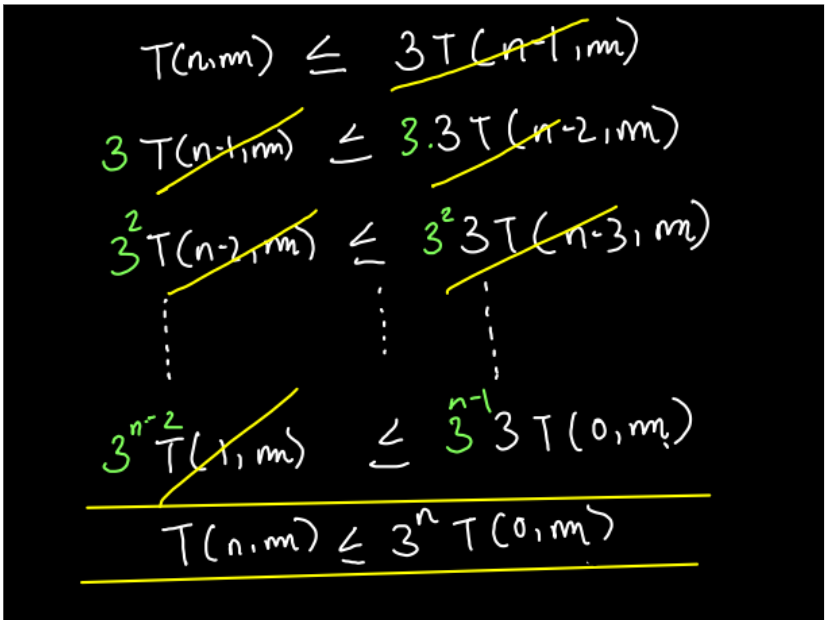 T(n,m) ≤ 3T(n-1,m)
3 T(n-1,m) ≤ 3.3T(n-2,m)
3² T(n-2,m) ≤ 3² 3T(n-3,m)
3ⁿ⁻² T(1,m) ≤ 3ⁿ⁻¹ 3T(0,m)
T(n,m) ≤ 3ⁿ T(0,m)